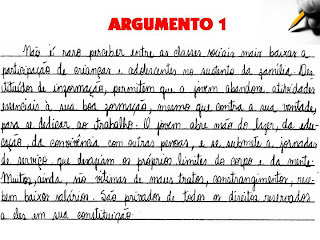 ARGUMENTO 1
Não é raro perceber entre as classes sociais mais baixas a
participação de crianças e adolescentes no sustento da família. Des
tituídos de informação, permitem que o jovem abandone atividades
essenciais à sua boa formação, mesmo que contra a sua vontade,
para se dedicar ao trabalho. O jovem abre mão do lazer, da edu-
cação, da convivência com outras pessoas, e se submete a jornadas
de serviço que desafiam os próprios limites do corpo e da mente.
Muitos, ainda, são vítimas de maus tratos, constrangimentos, rece-
bem baixos salários. São privados de todos os direitos reservados
a eles em sua constituição.